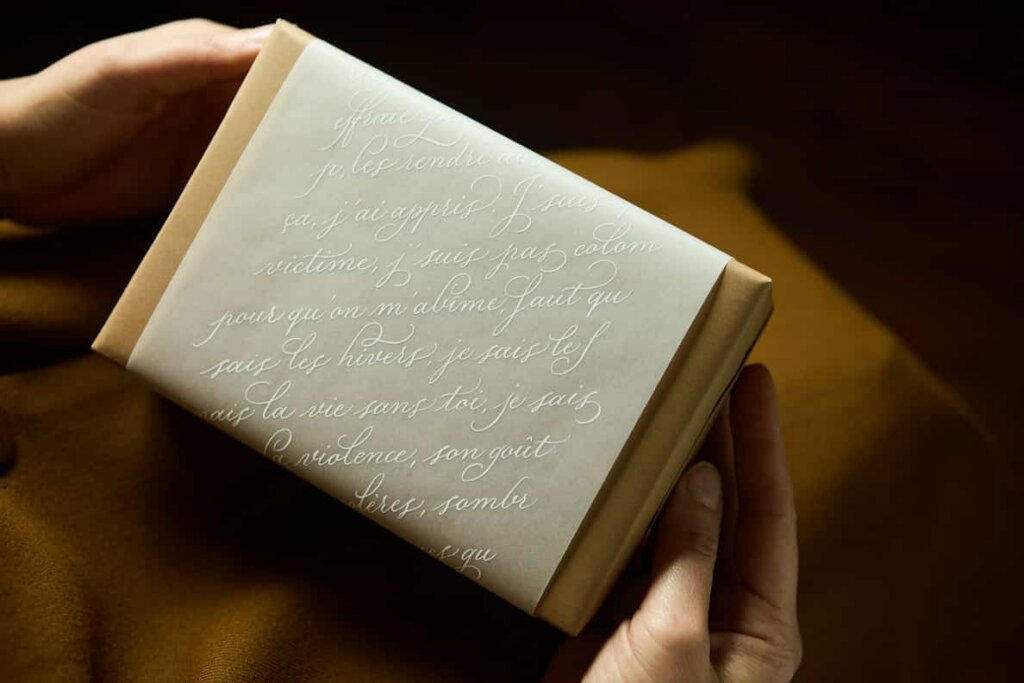 effraie
les rendre
ça, j'ai appris. J'suis
victime, j'suis pas colom
pour qu'on m'abîme, faut qu
sais les hivers, je sais les
mais la vie sans toi, je sais
la violence, son goût
lères, sombr
es qu